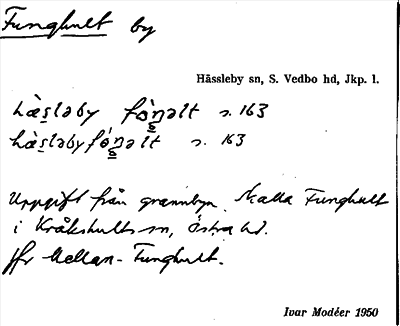 Funghult by
Hässleby sn, S. Vedbo hd, Jkp. l.
hæ̀s̲ləby fɷ̀ŋəlt s. 163
hæ̀s̲ləbyfɷ́ŋəlt s. 163
Uppgift från grannbyn Malla Funghult
i Kråkshults sn, Östra hd.
Jfr Mellan-Funghult.
Ivar Modéer 1950